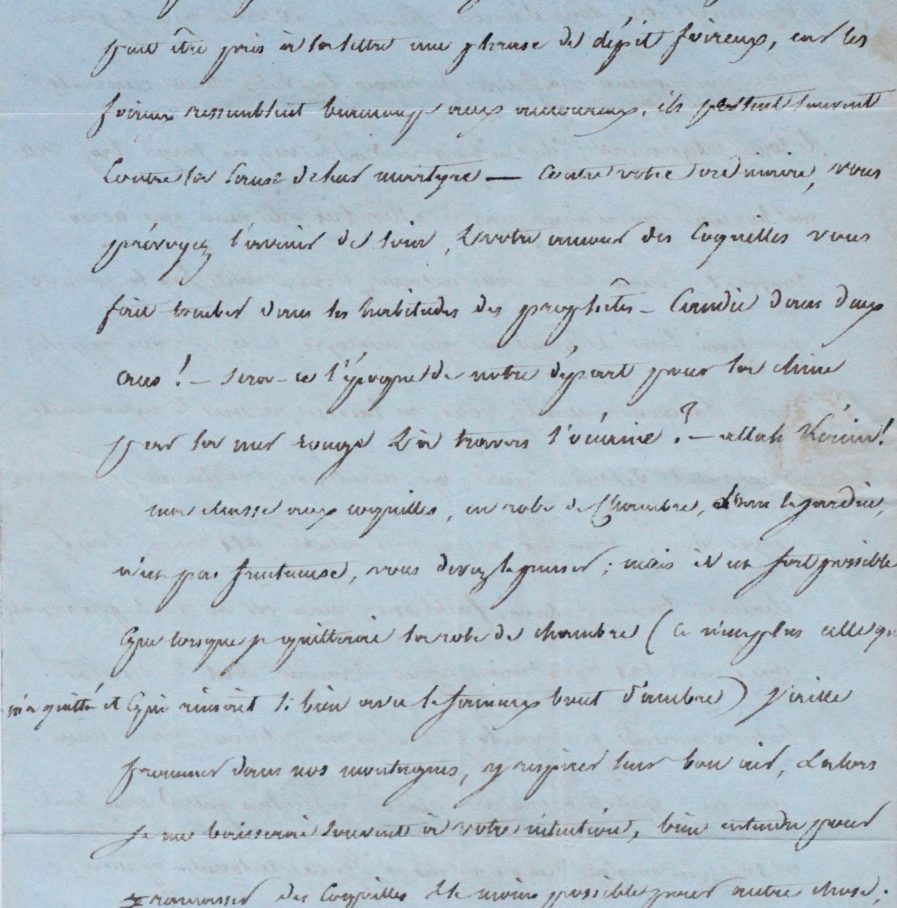 peut être pris à la lettre une phrase de dépit foireux, car les
foireux ressemblent beaucoup aux amoureux. ils pestent souvent
contre la cause de leur martyre — Contre votre ordinaire, vous
prévoyez l'avenir de loin, & votre amour des Coquilles vous
fait tomber dans les habitudes des prophètes — Candie dans deux
ans! — sera-ce l'époque de notre départ pour la chine
par la mer rouge & à travers l'océanie? — allah Kérim!
ma chasse aux coquilles, en robe de Chambre, dans le jardin,
n'est pas fructueuse, vous devez le penser; mais il est fort possible
que lorsque je quitterai la robe de chambre (ce n'est plus celle qui
m'a quitté et qui rimait si bien avec le fameux bout d'ambre) j'aille
promener dans nos montagnes, y respirer leur bon air, & alors
je me baisserai souvent à votre intention, bien entendu pour
ramasser des Coquilles & le moins possible pour autre chose.